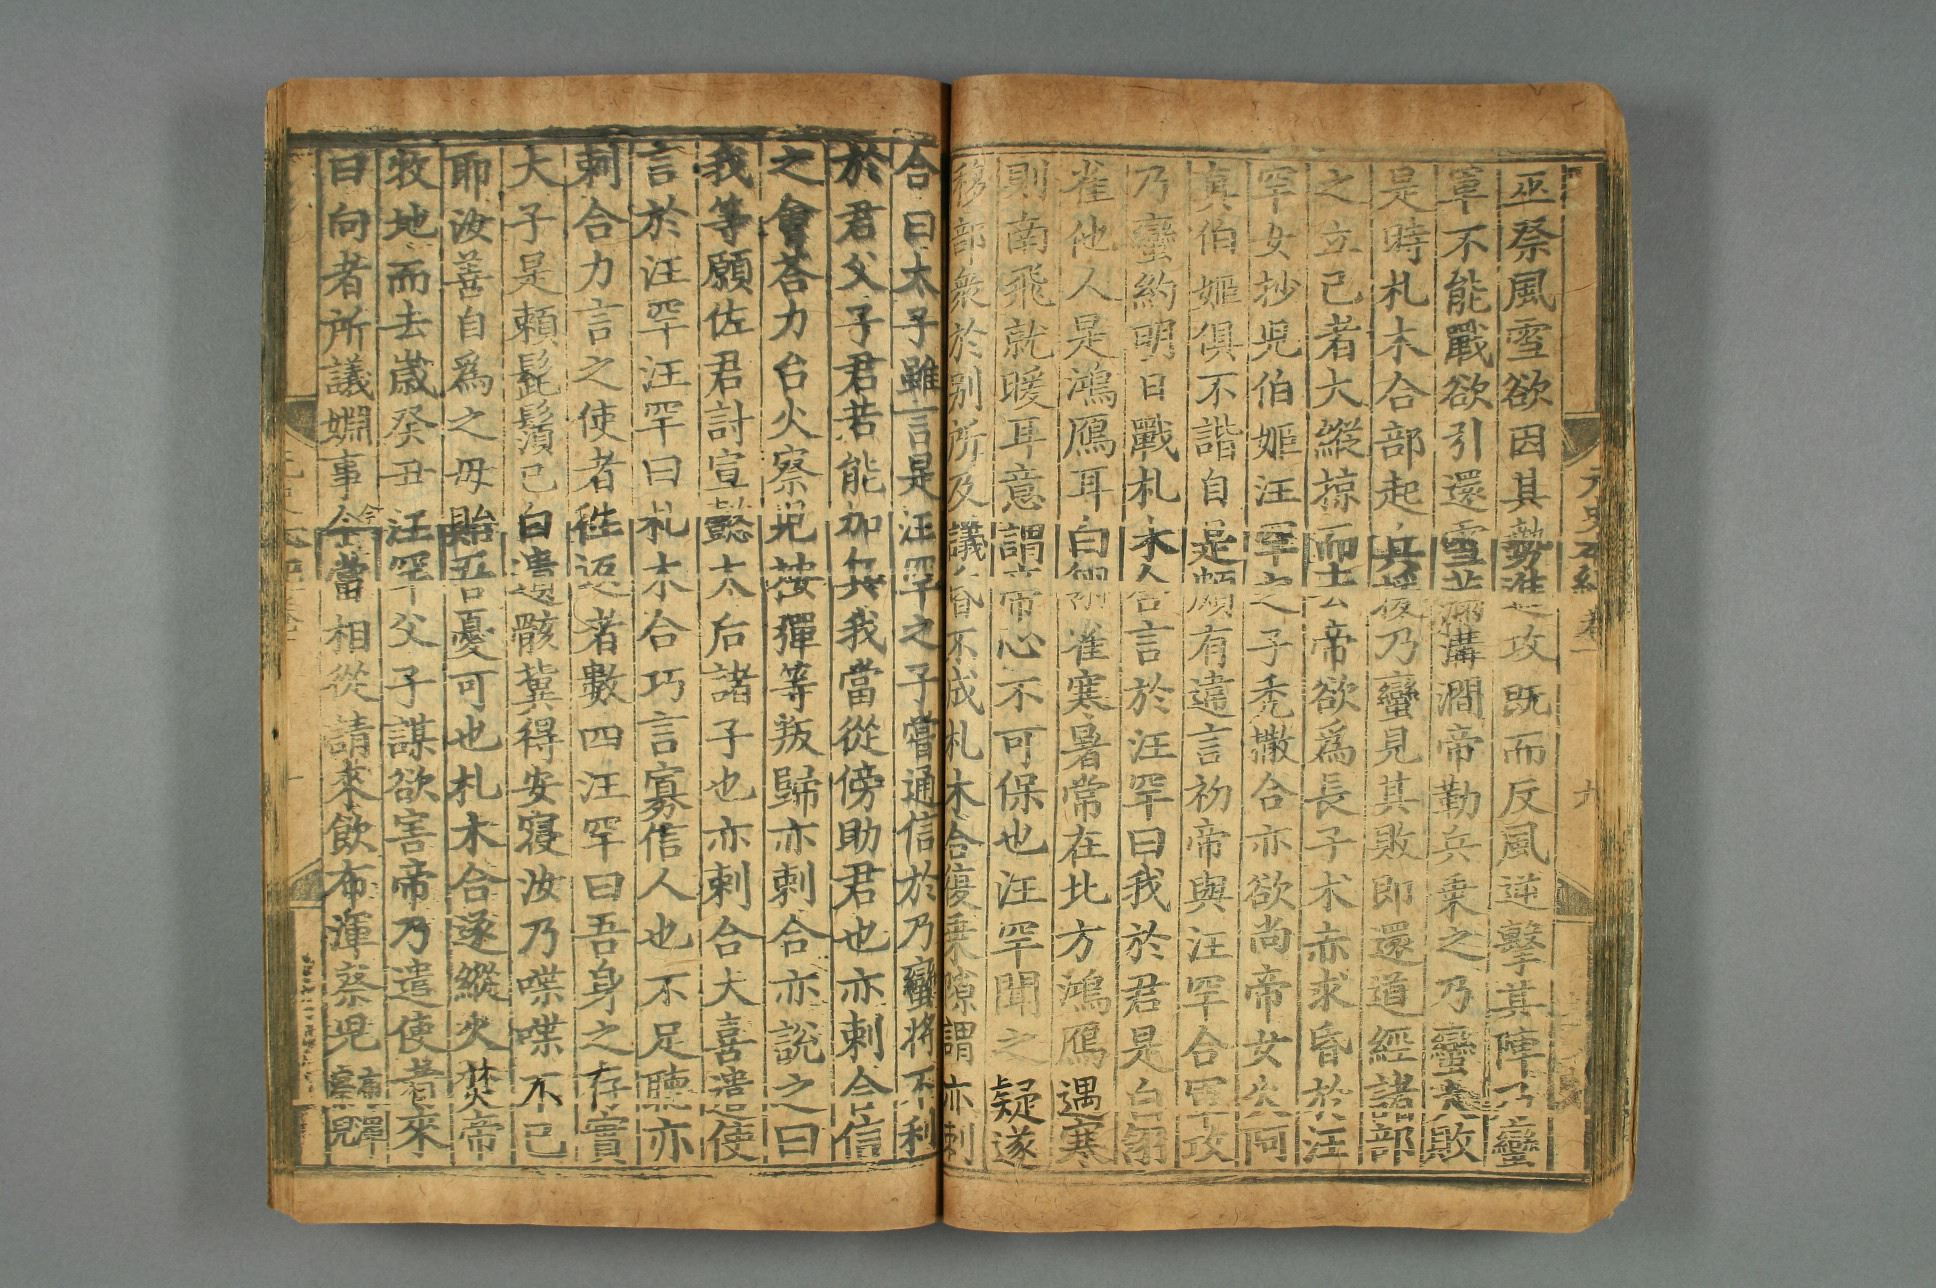 巫祭風雪欲因其勢進攻既而反風逆擊其陣乃蠻
軍不能戰欲引還雪滿溝澗帝勒兵乘之乃蠻大敗
是時札木合部起兵援乃蠻見其敗即還道經諸部
之立己者大縱掠而去帝欲爲長子术赤求昏於汪
罕女抄兒伯姬汪罕之子禿撒合亦欲尚帝女火阿
真伯姬俱不諧自是頗有違言初帝與汪罕合軍攻
乃蠻約明日戰札木合言於汪罕曰我於君是白翎
雀他人是鴻鴈耳白翎雀寒暑常在北方鴻鴈遇寒
則南飛就暖耳意謂帝心不可保也汪罕聞之疑遂
移部衆於别所及議昏不成札木合復乗隙謂亦剌
元史本紀卷一
九
合曰太子雖言是汪罕之子嘗通信於乃蠻將不利
於君父子君若能加兵我當從傍助君也亦剌合信
之會荅力台火察兒按彈等叛歸亦剌合亦説之曰
我等願佐君討宣懿太后諸子也亦剌合大喜遣使
言於汪罕汪罕曰札木合巧言寡信人也不足聽亦
剌合力言之使者徃返者數四汪罕曰吾身之存實
太子是頼髭鬚已白遺骸冀得安寢汝乃喋喋不已
耶汝善自爲之毋貽吾憂可也札木合遂縱火焚帝
牧地而去歲癸丑汪罕父子謀欲害帝乃遣使者來
曰向者所議姻事今當相從請來飲布渾察兒